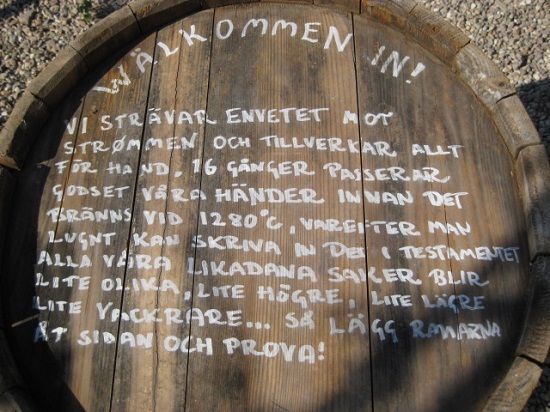 VÄLKOMMEN IN!
VI STRÄVAR ENVETET MOT
STRØMMEN OCH TILLVERKAR ALLT
FÖR HAND, 16 GÅNGER PASSERAR
GODSET VÅRA HÄNDER INNAN DET
BRÄNNS VID 1280°C, VAREFTER MAN
LUGNT KAN SKRIVA IN DET I TESTAMENTET
ALLA VÅRA LIKADANA SAKER BLIR
LITE OLIKA, LITE HÖGRE, LITE LÄGRE
LITE VACKRARE... SÅ LÄGG RAMARNA
ÅT SIDAN OCH PROVA!